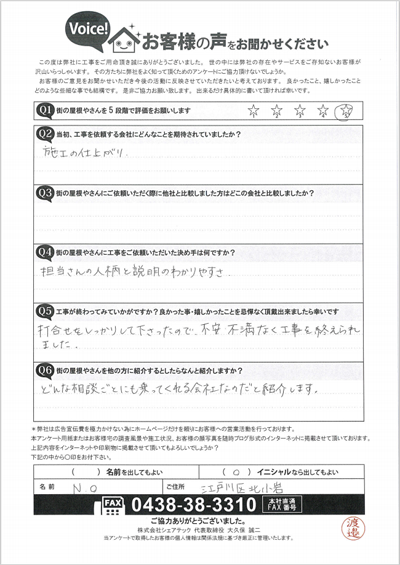 Voice!
お客様の声をお聞かせください
この度は弊社に工事をご用命頂き誠にありがとうございました。世の中には弊社の存在やサービスをご存知ないお客様が
沢山いらっしゃいます。その方たちに弊社をよく知って頂くためのアンケートにご協力頂けないでしょうか。
お客様のご意見をお聞かせいただき今後の活動に反映させていただきたいと考えております。良かったこと、嬉しかったこと
どのような些細な事でも結構です。是非ご協力お願い致します。出来るだけ具体的に書いて頂ければ幸いです。
Q1 街の屋根やさんを5段階で評価をお願いします
Q2 当初、工事を依頼する会社にどんなことを期待されていましたか？
施工の仕上がり.
Q3 街の屋根やさんにご依頼いただく際に他社と比較しました方はどこの会社と比較しましたか？
Q4 街の屋根やさんに工事をご依頼いただいた決め手は何ですか？
担当さんの人柄と説明のわかりやすさ.
Q5 工事が終わってみていかがですか？良かった事・嬉しかったことを忌憚なく頂戴出来ましたら幸いです
打合せをしっかりして下さったので、不安 不満なく工事を終えられ
ました.
Q6 街の屋根やさんを他の方に紹介するとしたらなんと紹介しますか？
どんな相談ごとにも乗ってくれる会社なのだと紹介します。
＊弊社は広告宣伝費を極力かけない為にホームページだけを頼りにお客様への営業活動を行っております。
本アンケート用紙またはお客様宅の調査風景や施工状況、お客様の顔写真を随時ブログ形式のインターネットに掲載させて頂いております。
上記内容をインターネットや印刷物に掲載させて頂いてもよろしいでしょうか？
下記の中から○印をお付下さい。
（　）名前を出してもよい （ ○ ）イニシャルなら出してもよい
名前 N.O ご住所 江戸川区北小岩
FAX 0438-38-3310 本社直通 FAX番号
ご協力ありがとうございました。
株式会社シェアテック 代表取締役 大久保 誠二
当アンケートで取得したお客様の個人情報は関係法規に基づき厳正に管理いたします。
渡邉